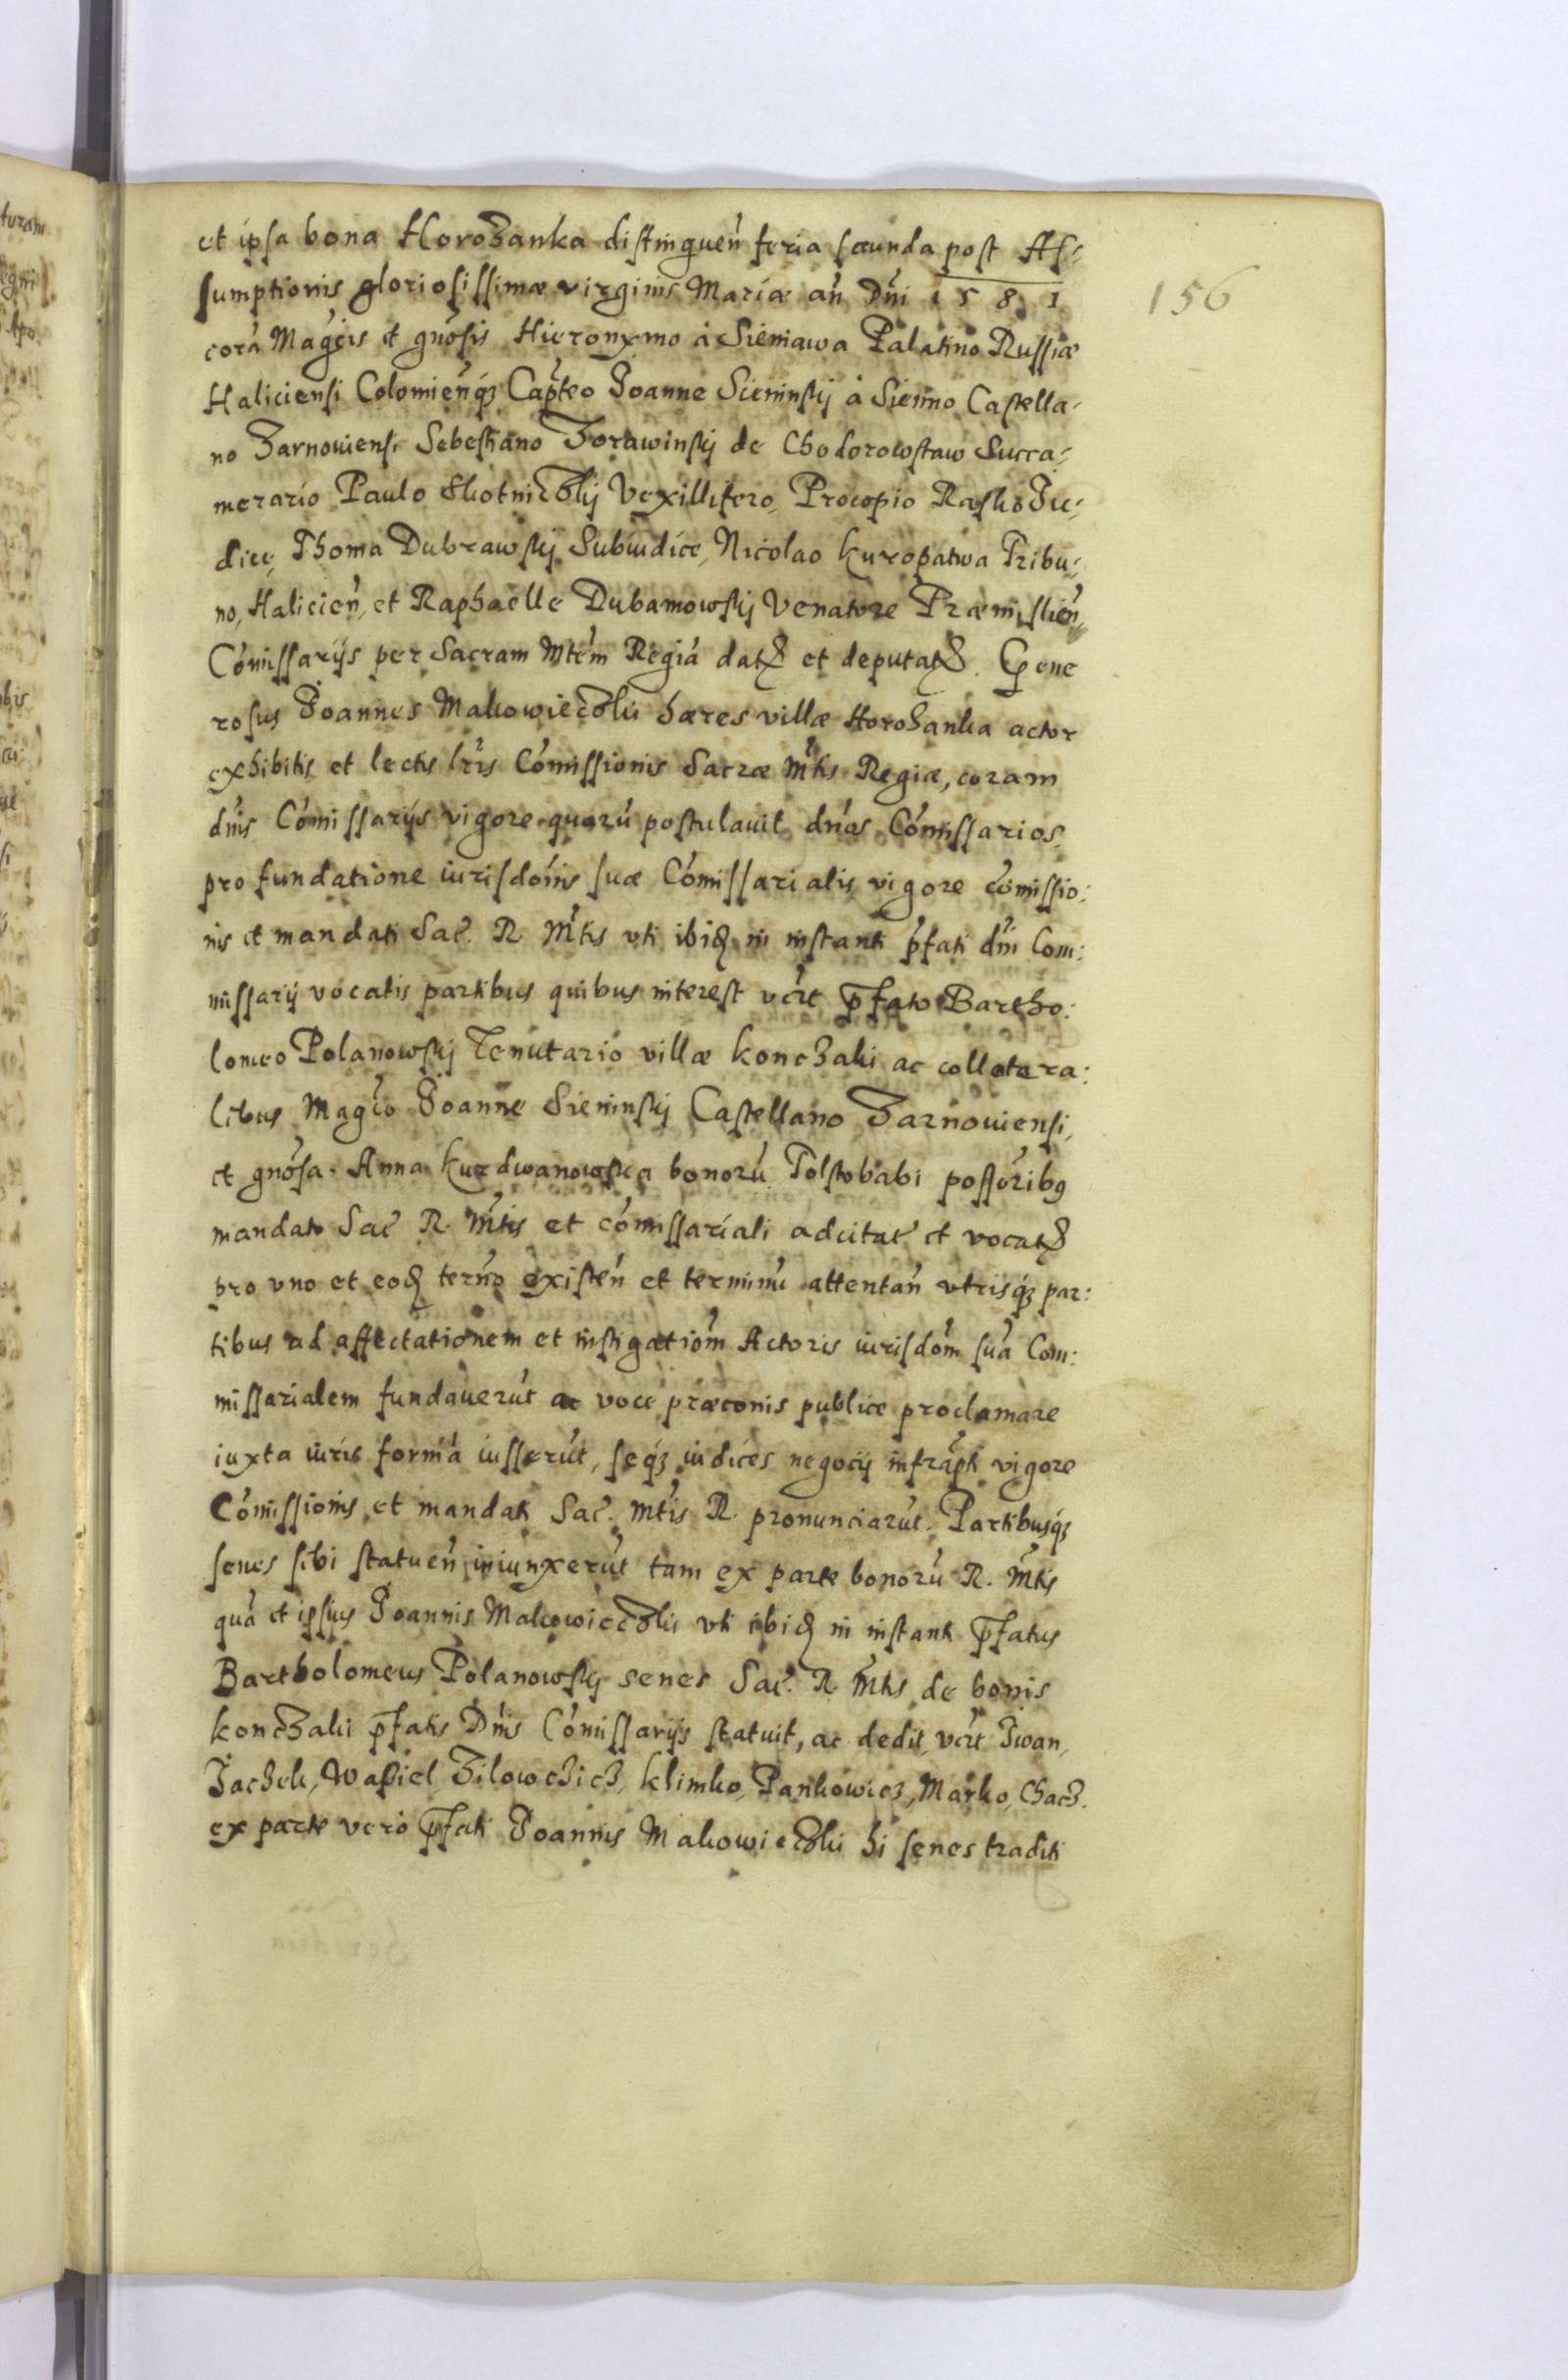 et ipsa bona Horožanka distinguen̄ feria secunda post As=
sumptionis gloriosissimæ virginis Mariæ an̄ Dn̄i 1581
156
corā Mag̃cis et gnõsis Hieronymo à Sieniawa Palatino Russiæ
Haliciensi Colomien̄q3 Cap̃teo Joanne Sieninskij à Sienno Castella=
no Żarnoviensi Sebestiano Żorawinskij de Chodorowstaw Succa=
merario Paulo Skotniczkij Vexillifero, Procopio Rasko Ju=
dice, Thoma Dubrawskij Subiudice, Nicolao Kuropatwa Tribu=
no, Halicien̄, et Raphaelle Dubamowskij Venatore Præmislien̄,
Cõmissarijs per Sacram Mtẽm Regiã datis et deputatis. Gene
rosus Joannes Makowieczkii hæres villæ Horožanka actor
exhibitis et lectis lrĩs Cõmissionis Sacræ Mtĩs Regiæ, coram
dnĩs Cõmissarijs vigore quarũ postulavit dnõs Cõmissarios,
pro fundatione iurisdõinis suæ Cõmissarialis vigore cõmissio:
nis et mandati Sac̃. R. Mtĩs uti ibid̃ in instanti p̃fati dn̄i Com:
missarij vocatis partibus quibus interest vćrt p̃fato Bartho:
lomeo Polanowskij Tenutario villæ Konczaki ac collatera:
libus Mag̃co Joanne Sieninskij Castellano Żarnoviensi,
et gnõsa Anna Kurdwanowska bonorũ Tolstobabi possõribus
mandato Sac̃ R. Mtĩs et cõmissariali adcitat̃ et vocatis
pro uno et eod̃ termño existen̄ et terminũ attentan̄ utrisq3 par:
tibus ad affectationem et instigatiõm Actoris iurisdõm suã Com:
missarialem fundaverũt ac voce præconis publice proclamare
iuxta iuris formã iusserũt, seq3 iudices negocij infrap̃ti vigore
Cõmissionis et mandati Sac̃. Mtĩs R. pronunciarũt. Partibusq3
senes sibi statuen̄ iniunxerũt tam ex parte bonorũ R. Mtĩs
quã et ipsius Joannis Makowieczkii uti ibid̃ in instanti p̃fatus
Bartholomeus Polanowskij senes Sac̃. R. Mtĩs de bonis
Konczaki p̃fatis Dnĩs Cõmissarijs statuit, ac dedit, vćrt Iwan,
Jaczek, Wasiel, Żilowczicz, Klimko, Pankowicz, Marko, Chacz.
ex parte vero p̃fati Joannis Makowieczkii hi senes traditi